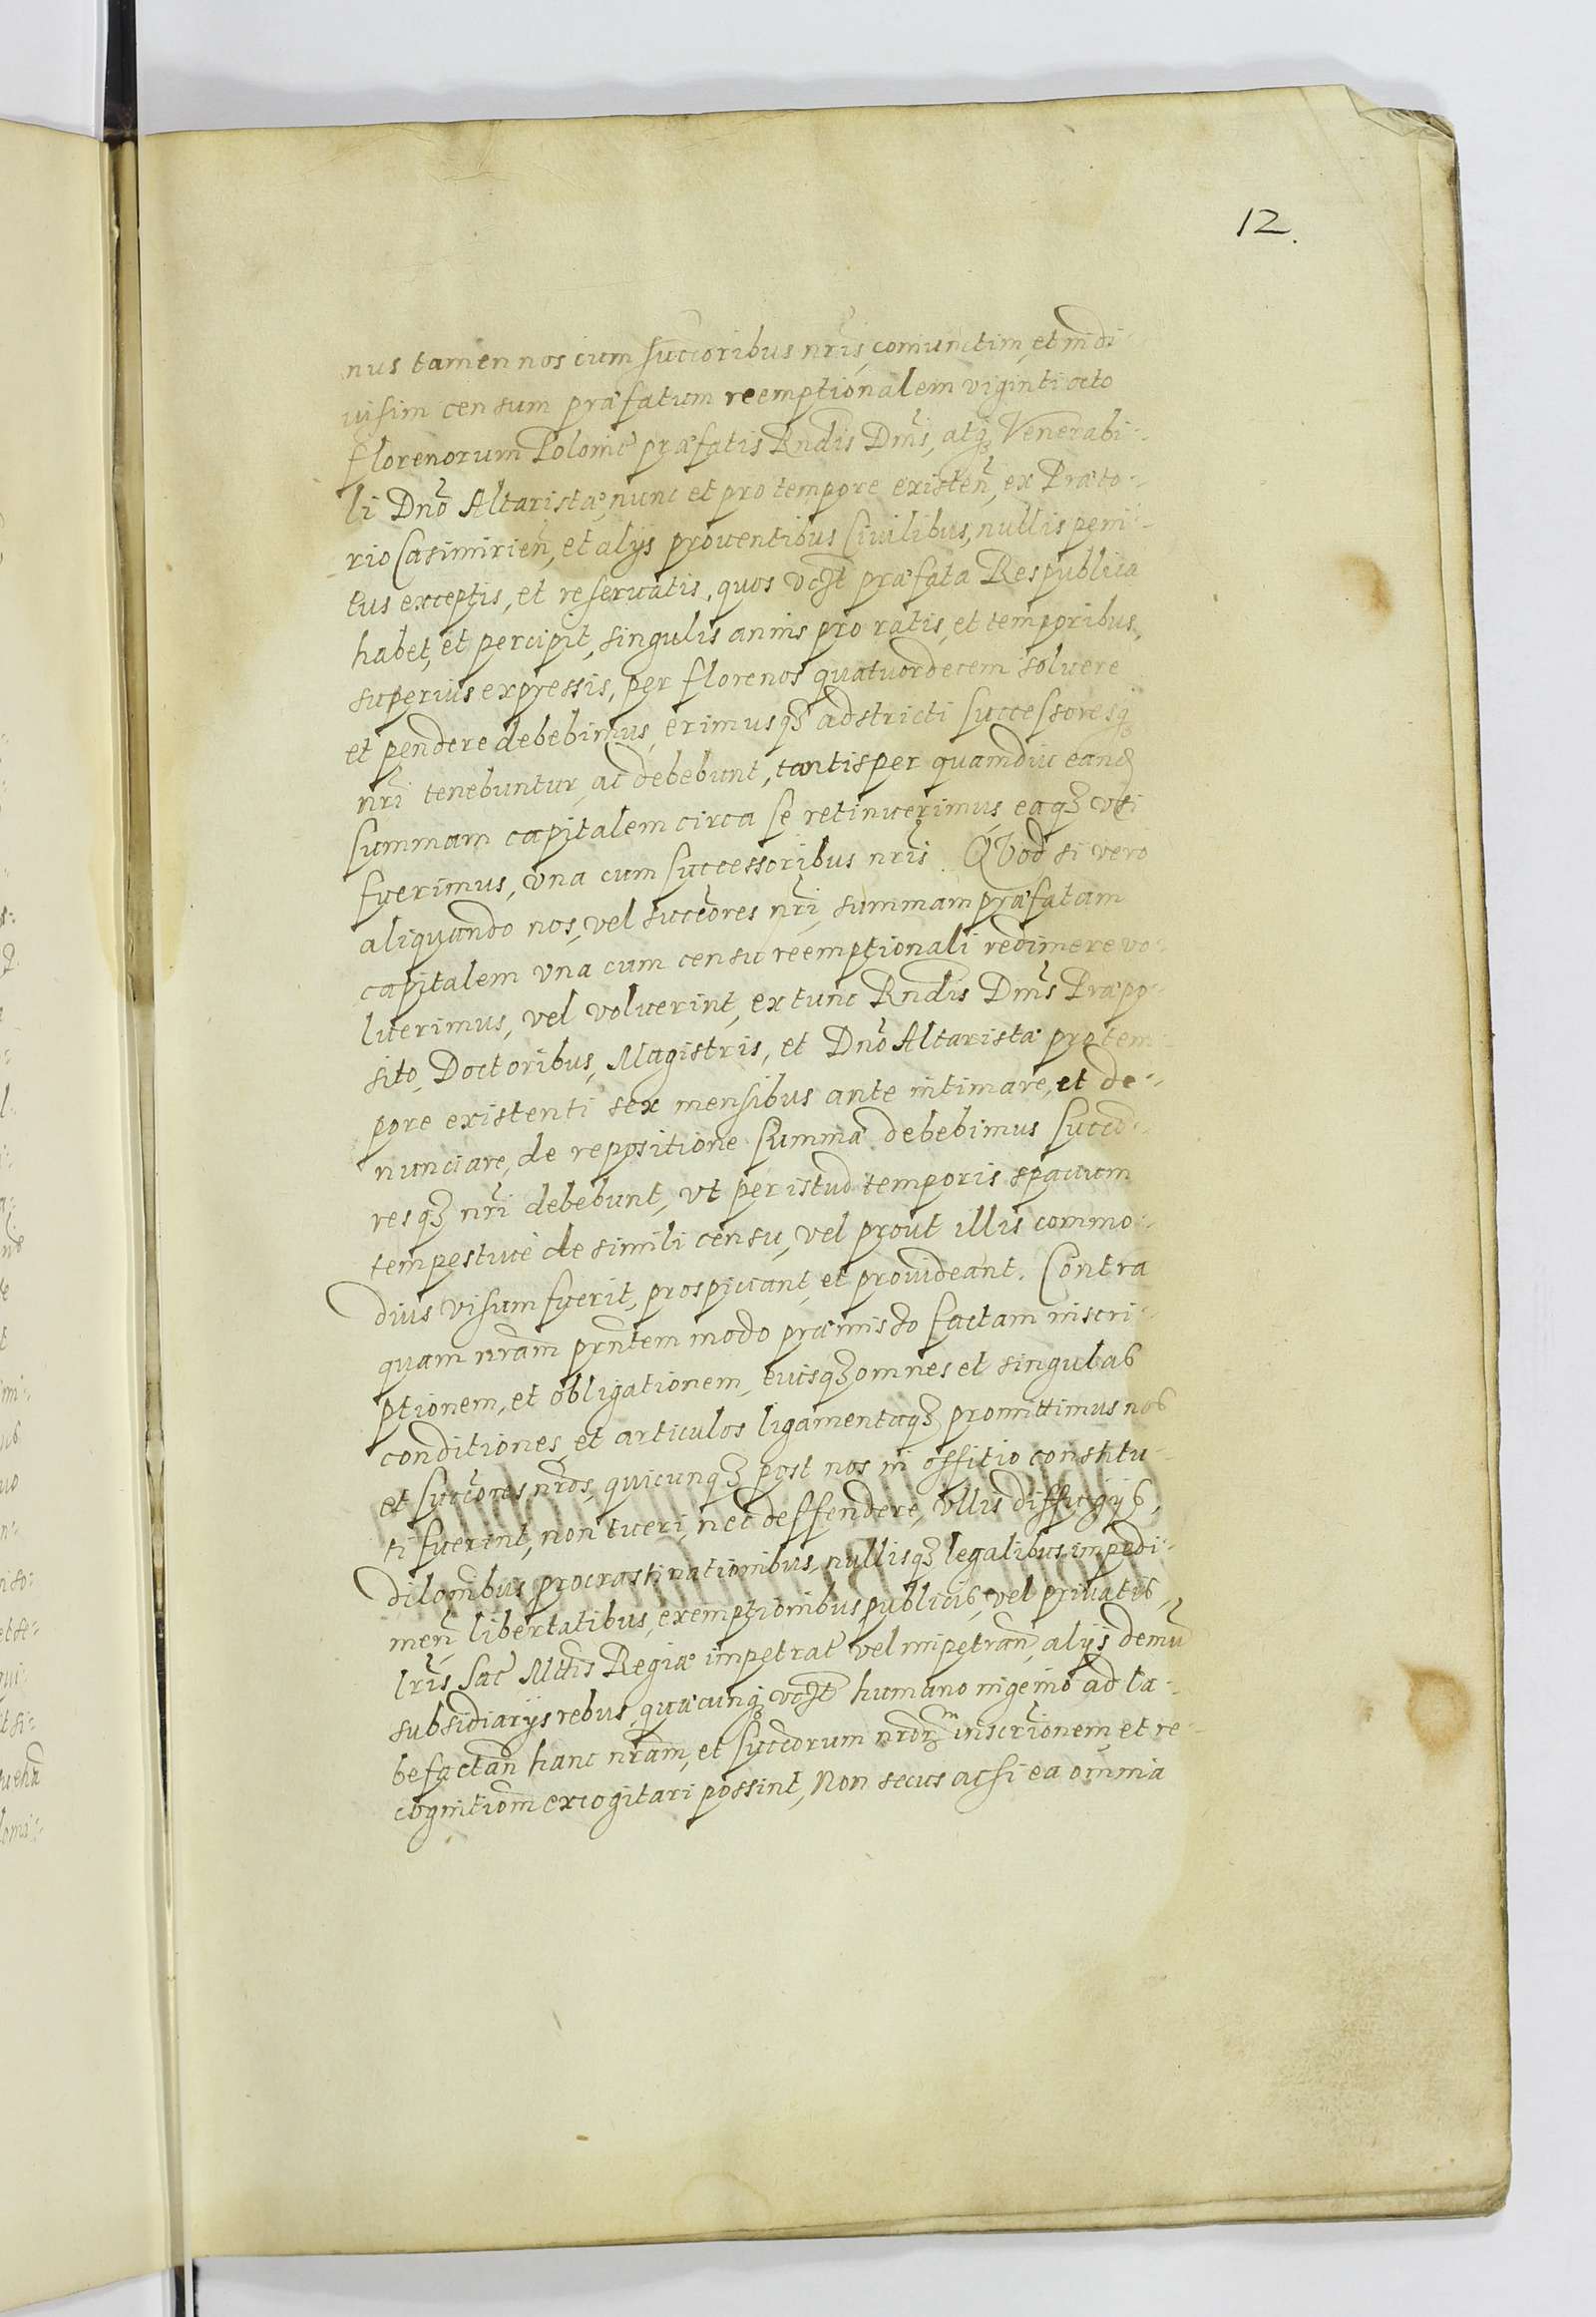 12.
nus tamen nos cum succoribus nris, coniunctim, et indi-
uisim censum præfatum reemptionalem viginti octo
florenorum Polonic præfatis Rndis Dnis, atq Venerabi-
li Dno Altaristæ, nunc et pro tempore existen, ex Præto-
rio Casimirien, et alys prouentibus Ciuilibus, nullis peni-
tus exceptis, et reseruatis, quos præfata Respublica
habet, et percipit, singulis annis pro ratis, et temporibus,
superius expressis, per florenos quatuordecem soluere
et pendere debebimus, erimusq adstricti successoresq
nri tenebuntur, ac debebunt, tantisper quamdiu eand
summam capitalem circa se retinuerimus, eaq usi
fuerimus, vna cum successoribus nris. QVod si vero
aliquando nos, vel succores nri, summam præfatam
capitalem vna cum censu reemptionali redimere vo-
luerimus, vel voluerint, ex tunc Rndis Dnis Præpo-
sito, Doctoribus, Magistris, et Dno Altaristæ pro tem-
pore existenti sex mensibus ante intimare, et de-
nunciare, de repositione summæ debebimus succo-
resq nri debebunt, vt per istud temporis spacium
tempestiue de simili censu, vel prout illis commo-
dius visum fuerit, prospiciant, et prouideant. Contra
quam nram prntem modo præmisso factam inscri-
ptionem, et obligationem, euisq omnes et singulas
conditiones, et articulos ligamentaq promittimus nos
et succores nros, quicunq post nos in offitio constitu-
ti fuerint, non tueri, nec deffendere, vllis diffugijs,
dilonibus procrastinationibus, nullisq legalibus impedi-
men libertatibus, exemptionibus publicis, vel priuatis,
lris Sac Mttis Regiæ impetrat vel impetran, alijs demu
subsidiarys rebus, quæcunq humano ingenio ad la-
befactan hanc nram, et succorum nror inscrionem, et re-
cognitionem excogitari possint, Non secus acsi ea omnia